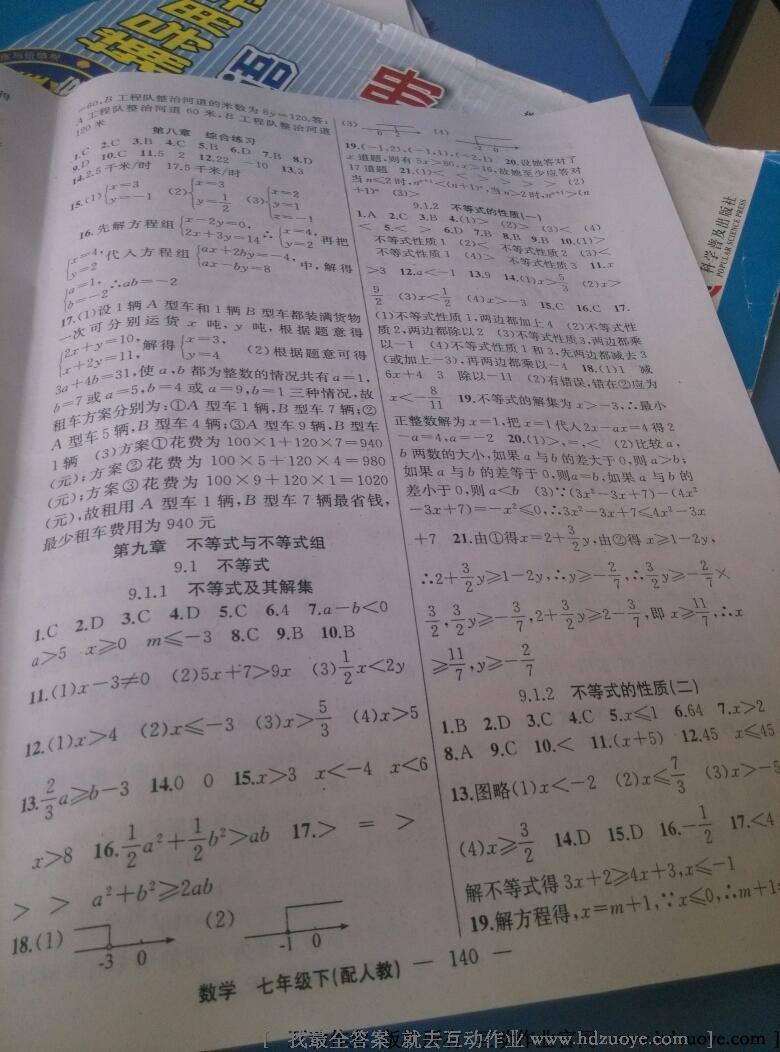 =60,B 工程队整治河道的米数为 8y=120.答:
A 工程队整治河道 60 米,B 工程队整治河道
120 米
第八章 综合练习
1.C 2.C 3.B 4.C 5.B 6.D 7.B 8.D
9.D 10.C 11.5 2 12.22 -10 13.3
14.2.5 千米/时 17.5 千米/时
15.(1){x=3 y=-1 (2){x=3 y=1/2 (3){x=2 y=1 z=-1
16.先解方程组{x-2y=0, 2x+3y=14 ∴{x=4, y=2 再把
{x=4, y=2 代入方程组{ax+2by=-4, ax-by=8 中,解得
{a=1, b=-2 ∴ab=-2
17.(1)设 1 辆 A 型车和 1 辆 B 型车都装满货物
一次可分别运货 x 吨,y 吨,根据题意得
{2x+y=10, x+2y=11, 解得{x=3, y=4 (2)根据题意可得
3a+4b=31,使 a,b 都为整数的情况共有 a=1,
b=7 或 a=5,b=4 或 a=9,b=1 三种情况,故
租车方案分别为:①A 型车 1 辆,B 型车 7 辆;②
A 型车 5 辆,B 型车 4 辆;③A 型车 9 辆,B 型车
1 辆 (3)方案①花费为 100×1+120×7=940
(元);方案②花费为 100×5+120×4=980
(元);方案③花费为 100×9+120×1=1020
(元),故租用 A 型车 1 辆,B 型车 7 辆最省钱,
最少租车费用为 940 元
第九章 不等式与不等式组
9.1 不等式
9.1.1 不等式及其解集
1.C 2.D 3.C 4.D 5.C 6.4 7.a-b<0
a>5 x⩾0 m⩽-3 8.C 9.B 10.B
11.(1)x-3≠0 (2)5x+7>9x (3)1/2x<2y
12.(1)x>4 (2)x⩽-3 (3)x>5/3 (4)x>5
13.2/3a⩾b-3 14.0 0 15.x>3 x<-4 x<6
x>8 16.1/2a²+1/2b²>ab 17.> = >
> > a²+b²⩾2ab
18.(1) -3 0 (2) -1 0
(3) 0 2 (4) -2 0
19.(-1,2),(-1,1),(-2,1) 20.设她答对了
x 道题,则有 5x>80,x>16,故她至少应答对
17 道题 21.(1)< < > > > (2)
当 n⩽2 时,nⁿ⁺¹<(n+1)ⁿ,当 n>2 时,nⁿ⁺¹>(n
+1)ⁿ (3)>
9.1.2 不等式的性质(一)
1.A 2.C 3.B 4.(1)> (2)> (3)< (4)
< 5.< > 6.D 7.B 8.B 9.B 10.(1)>
不等式性质 1 (2)< 不等式性质 2 (3)<
不等式性质 1 (4)> 不等式性质 3 11.x
>3 12.a<-1 13.9 14.(1)x>5/3 (2)x>
9/2 (3)x<1/2 (4)x>-3 15.C 16.C 17.
(1)不等式性质 1,两边都加上 4 (2)不等式性
质 2,两边都除以 2 (3)不等式性质 3,两边都乘
以-1 (4)不等式性质 1 和 3,先两边都减去 3
(或加上-3),再两边都乘以-4 18.(1)1 减
6x+4 3 除以-11 (2)有错误,错在②应为
x<-8/11 19.不等式的解集为 x>-3,∴最小
正整数解为 x=1,把 x=1 代入 2x-ax=4 得 2
-a=4,a=-2 20.(1)>,=,< (2)比较 a,
b 两数的大小,如果 a 与 b 的差大于 0,则 a>b;
如果 a 与 b 的差等于 0,则 a=b,如果 a 与 b 的
差小于 0,则 a<b (3)∵(3x²-3x+7)-(4x²
-3x+7)=-x²⩽0,∴3x²-3x+7⩽4x²-3x
+7 21.由①得 x=2+3/2y,由②得 x⩾1-2y,
∴2+3/2y⩾1-2y,∴y⩾-2/7,∴3/2y⩾-2/7×
3/2,3/2y⩾-3/7,2+3/2y⩾2-3/7,即 x⩾11/7,∴x
⩾11/7,y⩾-2/7
9.1.2 不等式的性质(二)
1.B 2.D 3.C 4.C 5.x⩽1 6.64 7.x>2
8.A 9.C 10.< 11.(x+5) 12.45 x⩽45
13.图略(1)x<-2 (2)x⩽7/3 (3)x>-5
(4)x⩾3/2 14.D 15.D 16.-1/2 17.<4
解不等式得 3x+2⩾4x+3,x⩽-1
19.解方程得,x=m+1,∵x⩽0,∴m+1
数学 七年级下(配人教) — 140 —
科学普及出版社
POPULAR SCIENCE PRESS
[ 我最全答案 就去互动作业 www.hdzuoye.com ]